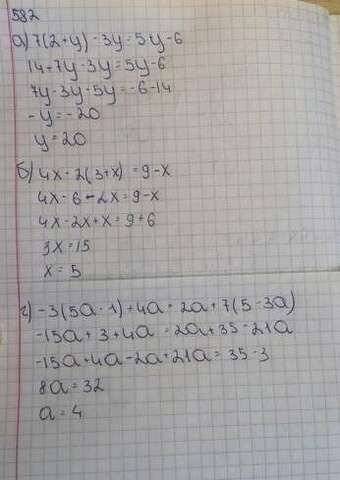 582
а) 7(2+y) - 3y = 5y - 6
14 + 7y - 3y = 5y - 6
7y - 3y - 5y = -6 - 14
-y = -20
y = 20
б) 4x - 2(3+x) = 9 - x
4x - 6 - 2x = 9 - x
4x - 2x + x = 9 + 6
3x = 15
x = 5
г) -3(5a - 1) + 4a = 2a + 7(5 - 3a)
-15a + 3 + 4a = 2a + 35 - 21a
-15a + 4a - 2a + 21a = 35 - 3
8a = 32
a = 4